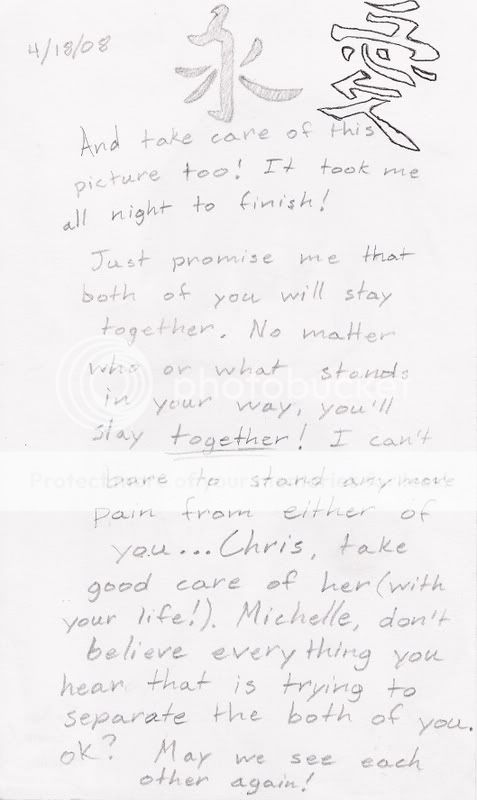 4/18/08
永 愛
And take care of this
picture too! It took me
all night to finish!
Just promise me that
both of you will stay
together. No matter
who or what stands
in your way, you'll
stay together! I can't
bare to stand anymore
pain from either of
you...Chris, take
good care of her (with
your life!). Michelle, don't
believe everything you
hear that is trying to
separate the both of you.
ok? May we see each
other again!
photobucket